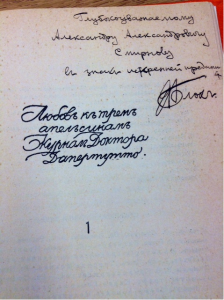 Глубокоуважаемому
Александру Александровичу
Смирнову
въ знакъ искренней
АБлокъ.
Любовь къ тремъ
апельсинамъ
Журналъ Доктора
Дапертутто.
1